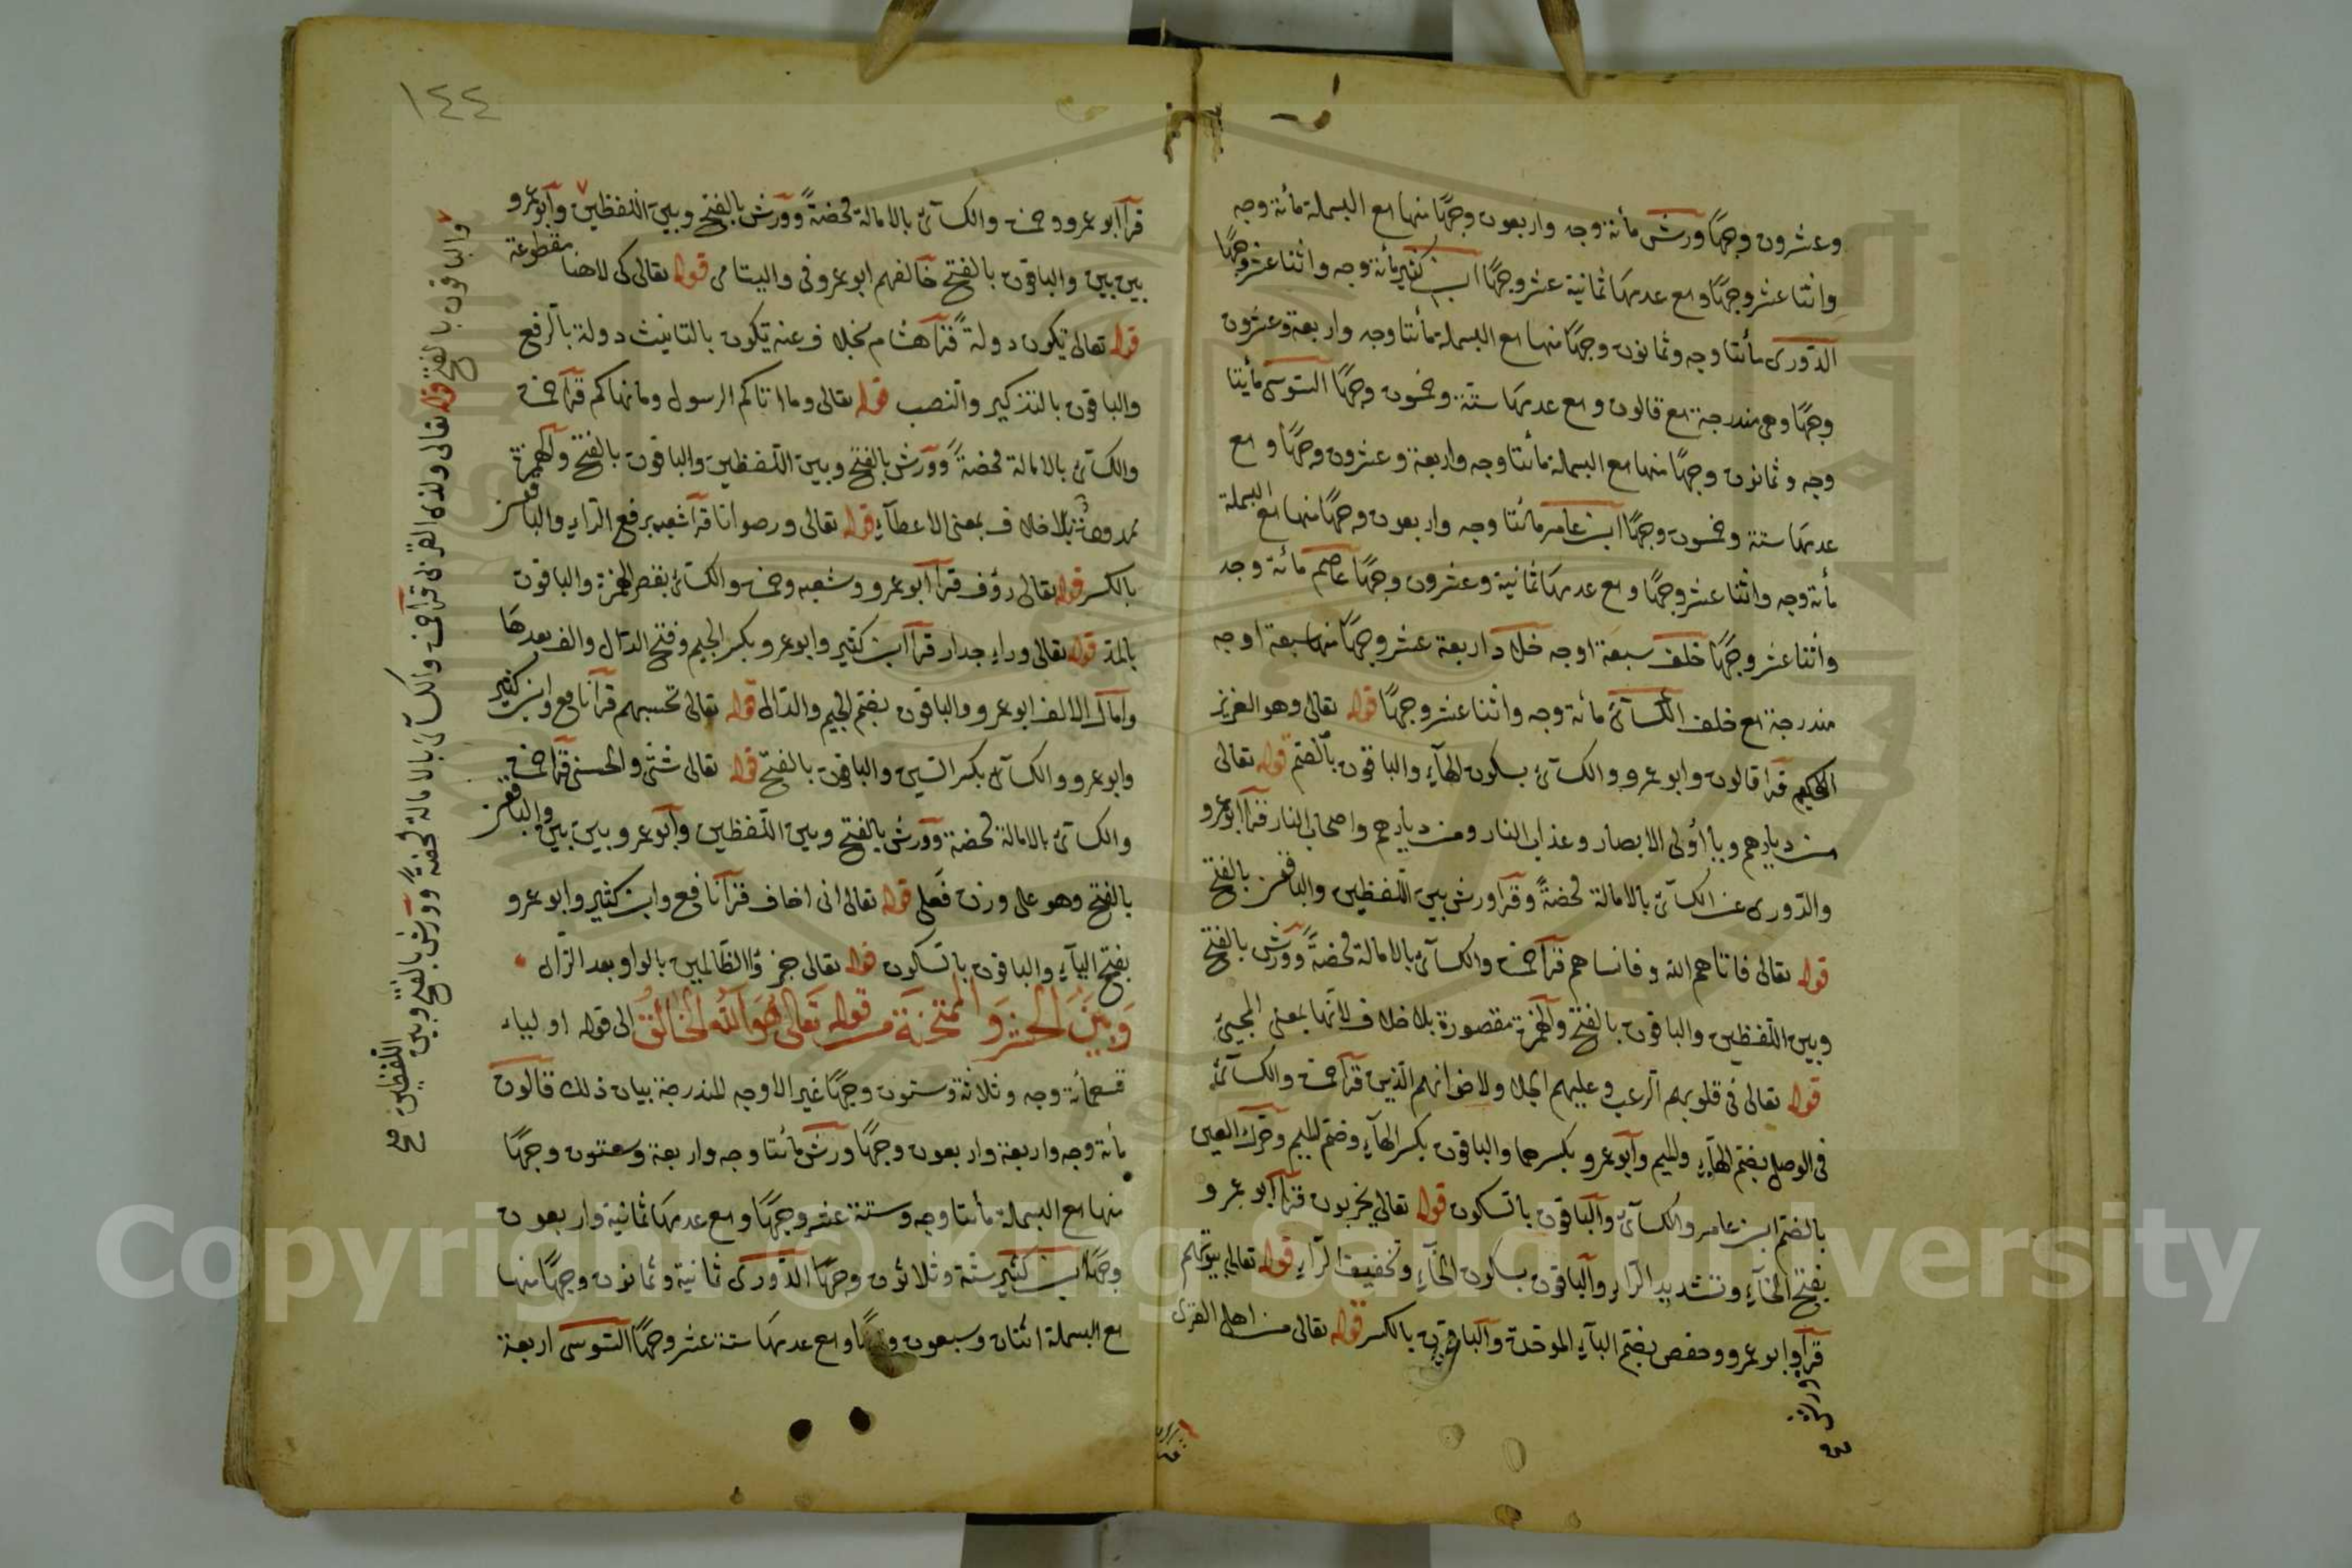 وعشرون وجهًا ورش مأئة وجه واربعون وجهًا منها مع البسملة مائة وجه
واثنا عشر وجهًا ومع عدمها ثمانية عشر وجهًا ابن كثير مأئة وجه واثنا عشر وجهًا
الدّوري مأئتا وجه وثمانون وجهًا منها مع البسملة مأئتا وجه واربعة وعشرون
وجهًا وهي مندرجة مع قالون ومع عدمها ستة وخمسون وجهًا السّوسي مأئتا
وجه وثمانون وجهًا منها مع البسملة مائتا وجه واربعة وعشرون وجهًا ومع
عدمها ستة وخمسون وجهًا ابن عامر مائتا وجه واربعون وجهًا منها مع البسملة
مأئة وجه واثنا عشر وجهًا ومع عدمها ثمانية وعشرون وجهًا عاصم مائة وجه
واثنا عشر وجهًا خلف سبعة اوجه خلاد اربعة عشر وجهًا منها سبعة اوجه
مندرجة مع خلف الكسآئي مائة وجه واثنا عشر وجهًا قوله تعالى وهو العزيز
الحكيم قرا قالون وابو عمرو والكسآئي بسكون الهآء والباقون بالضم قوله تعالى
من ديارهم ويا أولى الابصار وعذاب النار ومن ديارهم واصحاب النار قرآ ابو عمرو
والدّورى عن الكسآئي بالامالة محضةً وقرا ورش بين اللّفظين والباقون بالفتح
قوله تعالى فاتاهم الله وفانساهم قرآ حمزة والكسآئي بالامالة محضةً وورش بالفتح
وبين اللّفظين والباقون بالفتح والهمزة مقصورة بلا خلاف لأنّها بمعنى المجيئ
قوله تعالى في قلوبهم الرّعب وعليهم الجلاء ولاخوانهم الّذين قرآ حمزة والكسآئي
في الوصل بضمّ الهآء والميم وابو عمرو بكسرهما والباقون بكسر الهآء وضم الميم وحرّك العين
بالضم ابن عامر والكسآئي والباقون بالسّكون قوله تعالى يخربون قرآ ابو عمرو
بفتح الخآء وتشديد الرّاء والباقون بسكون الخآء وتخفيف الرّآء قوله تعالى بيوتهم
قرآ وابو عمرو وحفص بضم البآء الموحدة والباقون بالكسر قوله تعالى من اهل القرى
ورش
صح
١٤٤
قرآ ابو عمرو وحمزة والكسآئي بالامالة محضةً وورش بالفتح وبين اللّفظين وابو عمرو
بين بين والباقون بالفتح خالفهم ابو عمرو في واليتامى قوله تعالى كى لا هنا مقطوعة
قوله تعالى يكون دولةً قرآ هشام بخلاف عنه تكون بالتانيث دولة بالرّفع
والباقون بالتذكير والنصب قوله تعالى وما اتاكم الرسول وما نهاكم قرآ حمزة
والكسآئي بالامالة محضةً وورش بالفتح وبين اللّفظين والباقون بالفتح والهمزة
ممدودة بلا خلاف بمعنى الاعطآء قوله تعالى ورضوانا قرآ شعبه برفع الرّاء والباقون
بالكسر قوله تعالى رؤف قرآ ابو عمرو وشعبه وحمزة والكسآئي بقصر الهمزة والباقون
بالمدّ قوله تعالى وراء جدار قرآ ابن كثير وابو عمرو بكسر الجيم وفتح الدّال والف بعدها
وامال الالف ابو عمرو والباقون بضم الجيم والدّال قوله تعالى تحسبهم قرآ نافع وابن كثير
وابو عمرو والكسآئي بكسر السّين والباقون بالفتح قوله تعالى شتّى والحسنى قرآ حمزة
والكسآئي بالامالة محضة وورش بالفتح وبين اللّفظين وابو عمرو بين بين والباقون
بالفتح وهو على وزن فعلى قوله تعالى انى اخاف قرآ نافع وابن كثير وابو عمرو
بفتح اليآء والباقون بالسكون قوله تعالى جزؤا الظّالمين بالواو بعد الزّاء
وَبَيْنَ الحشر والممتحنة من قوله تعالى هو الله الخالق الى قوله اولياء
تسعمائة وجه وثلاثة وستون وجهًا غير الاوجه المندرجة بيان ذلك قالون
مائة وجه واربعة واربعون وجهًا ورش مائتا وجه واربعة وستون وجهًا
منها مع البسملة مأئتا وجه وستة عشر وجهًا ومع عدمها ثمانية واربعون
وجهًا ابن كثير ستة وثلاثون وجهًا الدّورى ثمانية وثمانون وجهًا منها
مع البسملة اثنان وسبعون وجهًا ومع عدمها ستة عشر وجهًا السّوسى اربعة
والباقون بالفتح قوله تعالى ولذى القربى قرآ حمزة والكسآئي بالامالة محضةً وورش بالفتح وبين
اللّفظين صح
Copyright © King Saud University